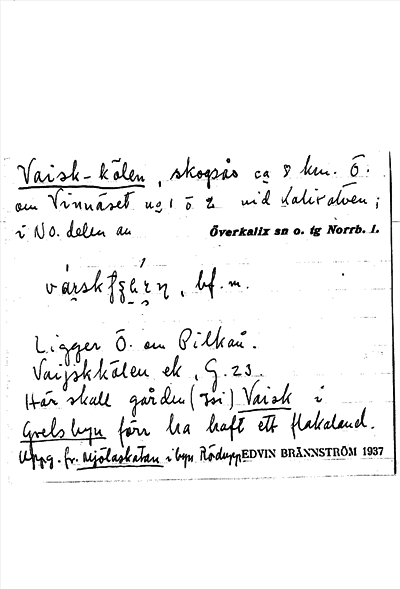 Vaisk-kölen, skogsås ca 8 km. Ö.
om Vinnäset no 1 o 2 vid Kalixälven;
i NO. delen av Överkalix sn o. tg Norrb. l.
bf. m.
Ligger Ö. om Pilkån.
Vaijskkölen ek. G. 23.
Här skall gården (Isi) Vaisk i
Grelsbyn förr ha haft ett flakaland.
Uppg. fr. Mjölaskatan i byn Rödupp EDVIN BRÄNNSTRÖM 1937